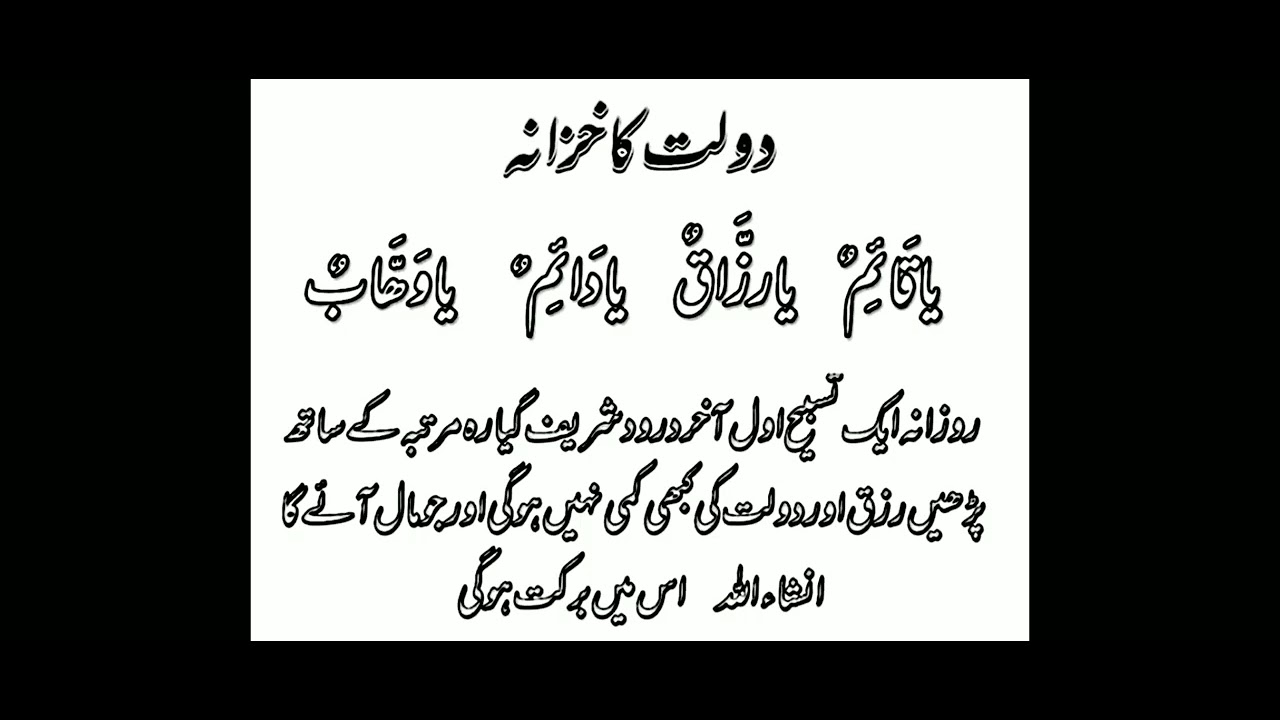 دولت کا خزانہ
یا قَائِمٌ یا رزَّاقٌ یا دَائِمٌ یا وَھَّابٌ
روزانہ ایک تسبیح اول آخر درود شریف گیارہ مرتبہ کے ساتھ
پڑھیں رزق اور دولت کی کبھی کمی نہیں ہوگی اور جو مال آئے گا
انشاء اللہ اس میں برکت ہوگی